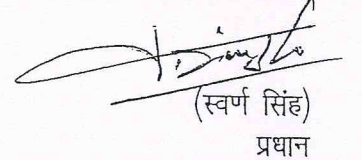 (स्वर्ण सिंह)
प्रधान